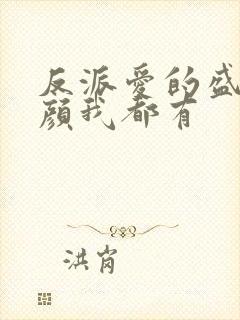 反派爱的盛
颜我都有
洪肖